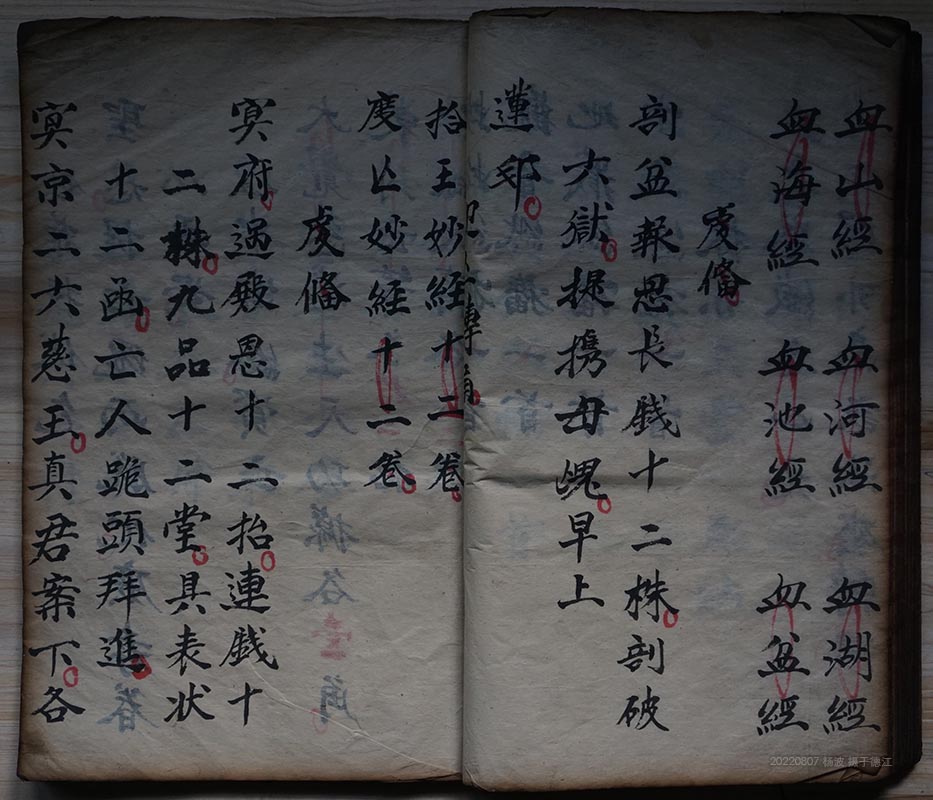 血山經 血河經 血湖經
血海經 血池經 血盆經
虔俻
剖盆報恩長錢十二株剖破
六獄提携母魂早上
蓮邦
拾王妙經十二卷
度亾妙經十二卷
虔俻
冥府遇殿恩十二抬連錢十
二株九品十二堂具表状
冥京二六慈王真君案下各
十二函亡人跪頭拜進
20220807 杨波 摄于德江